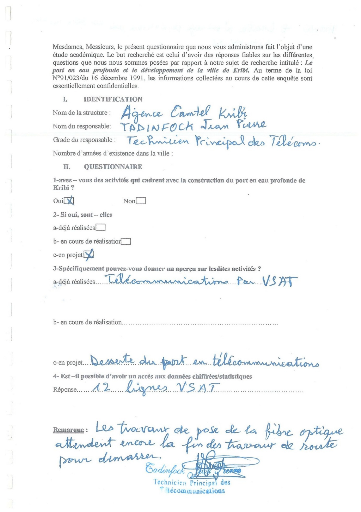 Mesdames, Messieurs, le présent questionnaire que nous vous administrons fait l'objet d'une
étude académique. Le but recherché est celui d'avoir des réponses fiables sur les différentes
questions que nous nous sommes posées par rapport à notre sujet de recherche intitulé : Le
port en eau profonde et le développement de la ville de Kribi. Au terme de la loi
N°91/023/du 16 décembre 1991, les informations collectées au cours de cette enquête sont
essentiellement confidentielles.
I. IDENTIFICATION
Nom de la structure : Agence Camtel Kribi
Nom du responsable : TADINFOCK Jean Pierre
Grade du responsable : Technicien Principal des Télécoms.
Nombre d'années d'existence dans la ville :
II. QUESTIONNAIRE
1-avez – vous des activités qui cadrent avec la construction du port en eau profonde de
Kribi ?
Oui X Non
2- Si oui, sont – elles
a-déjà réalisées
b- en cours de réalisation
c-en projet X
3-Spécifiquement pouvez-vous donner un aperçu sur lesdites activités ?
a-déjà réalisées.... Télécommunications Par VSAT
b- en cours de réalisation..............
c-en projet.... Desserte du port en télécommunications
4- Est –il possible d'avoir un accès aux données chiffrées/statistiques
Réponse........ 12 lignes VSAT........
Remarque : Les travaux de pose de la fibre optique
attendent encore la fin des travaux de route
pour démarrer.
Tadinfock
Technicien Principal des
Télécommunications